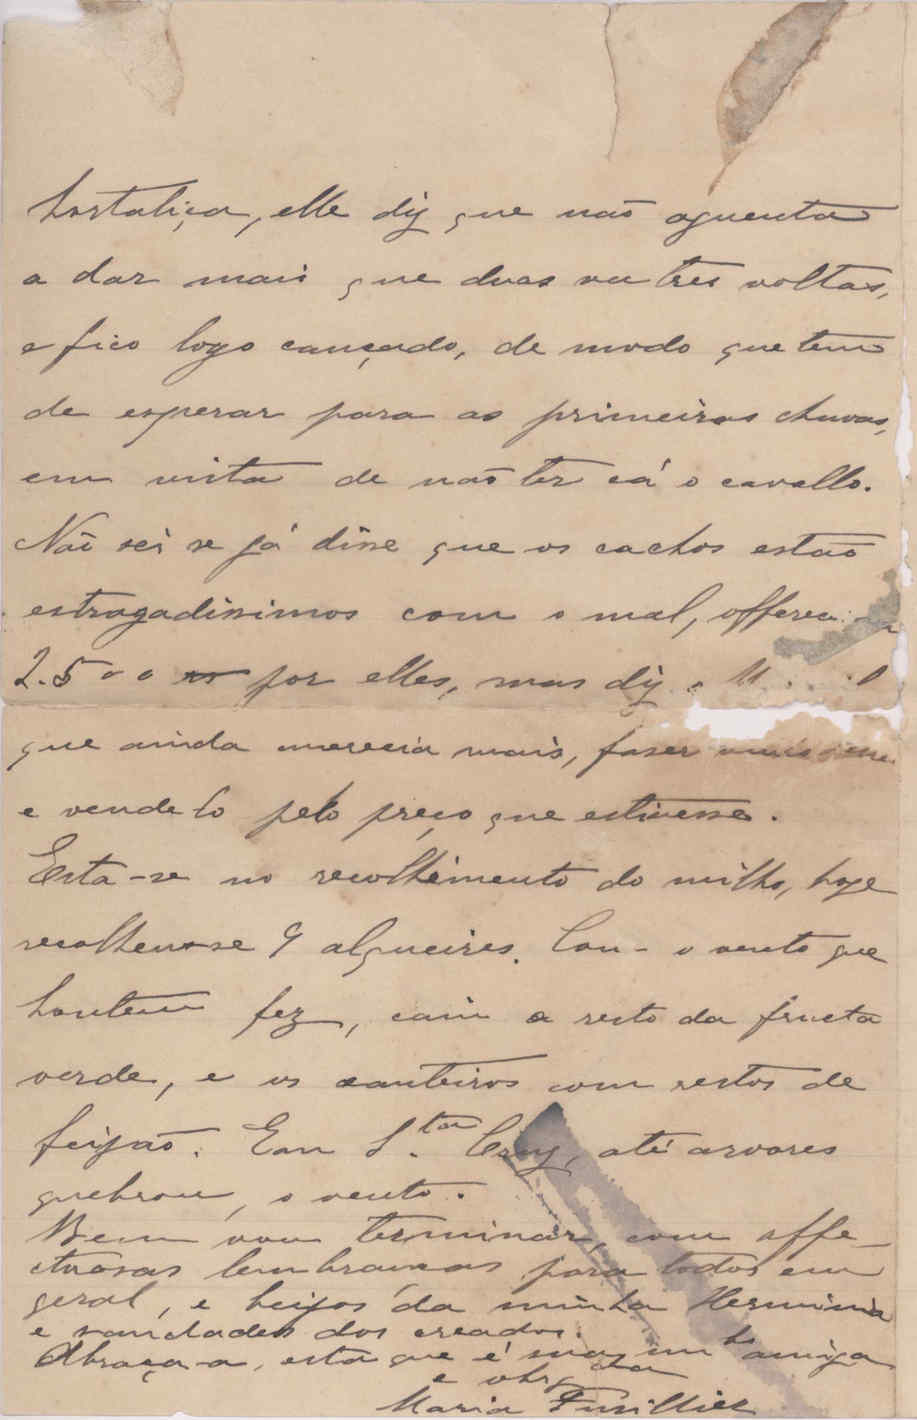 hortaliça, elle diz que não aguenta
a dar mais que duas ou tres voltas,
e fico logo cançado, de modo que tem
de esperar para as primeiras chuvas,
em vista de não ter cá o cavallo.
Não sei se já disse que os cachos estão
estragadissimos com o mal,
2.500 rs por elles, mas diz
que ainda merecia mais, fazer
e vendelo pelo preço que estivesse.
Esta-se no recolhimento do milho, hoje
recolheu-se 9 alqueires. Com o vento que
hontem fez, caiu o resto da fructa
verde, e os canteiros com restos de
feijão. Em S.ta Cruz, até arvores
quebrou, o vento.
Bem vou terminar, com affe-
ctuosas lembranças para todos em
geral, e beijos da minha Herminia
e saudades dos creados.
Abraça-a, esta que é sua mto amiga
e obrgda
Maria